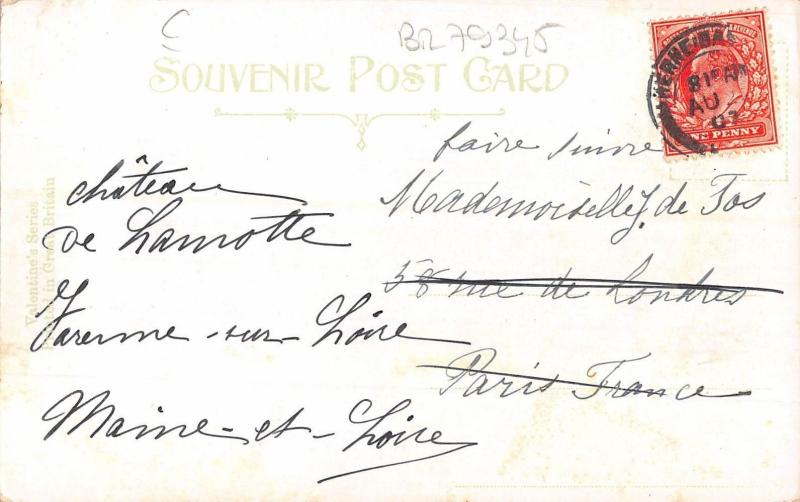 BR 79345
SOUVENIR POST CARD
& REVENUE
ONE PENNY
AU
07
faire suivre
Mademoiselle J. de Fos
58 rue de Londres
Paris France
château
de Lamotte
Varenne-sur-Loire
Maine-et-Loire
Valentine's Series
Printed in Great Britain